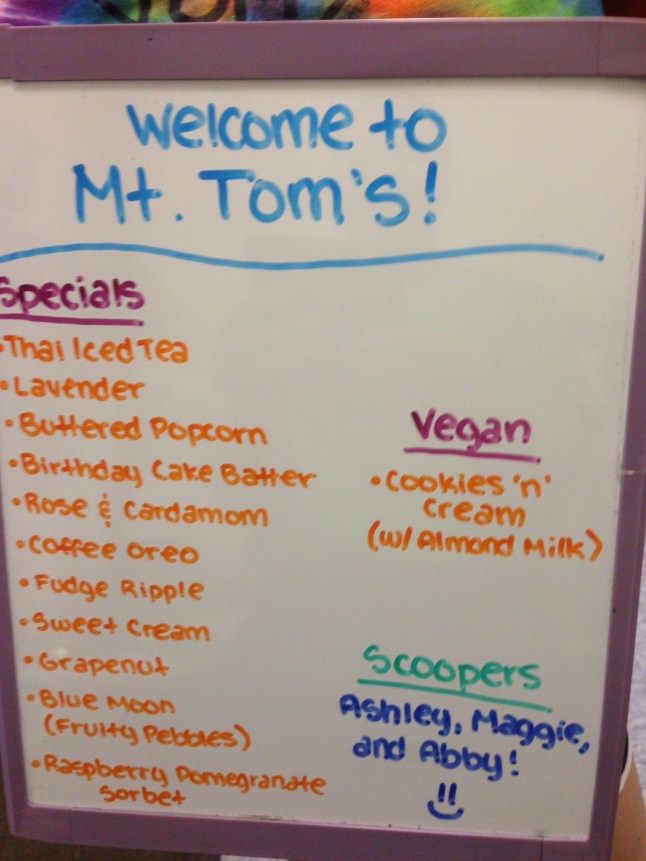 Welcome to
Mt. Tom's!
Specials
•Thai Iced Tea
•Lavender
•Buttered Popcorn
•Birthday Cake Batter
•Rose & Cardamom
•Coffee Oreo
•Fudge Ripple
•Sweet Cream
•Grapenut
•Blue Moon
(Fruity Pebbles)
•Raspberry Pomegranate
Sorbet
Vegan
•Cookies 'n'
Cream
(w/ Almond Milk)
Scoopers
Ashley, Maggie,
and Abby!